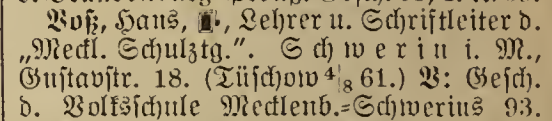 Voß, Hans, Lehrer u. Schriftleiter d.
„Meckl. Schulztg.“. Schwerin i. M.,
Gustavstr. 18. (Tüschow 4/8 61.) V: Gesch.
d. Volksschule Mecklenb.=Schwerins 93.